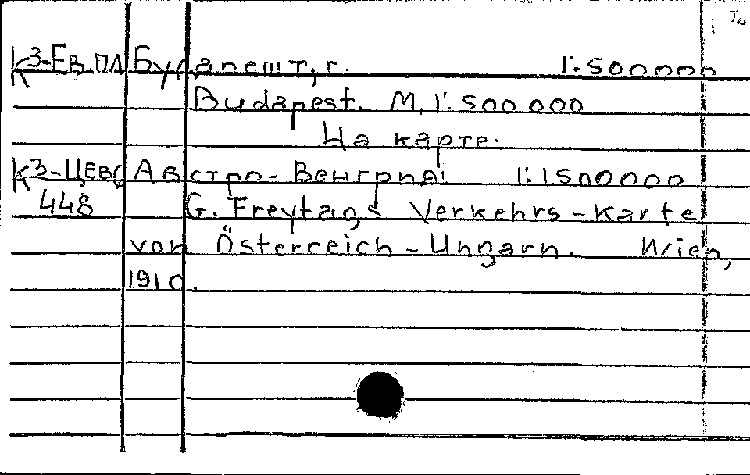 К3-Ев.пл Будапешт, г. 1:500000
Budapest. M, 1:500 000
На карте:
К3-ЦЕв Австро-Венгрия: 1:1500000
448 G. Freytags Verkehrs-Karte
von Österreich-Ungarn. Wien,
1910.